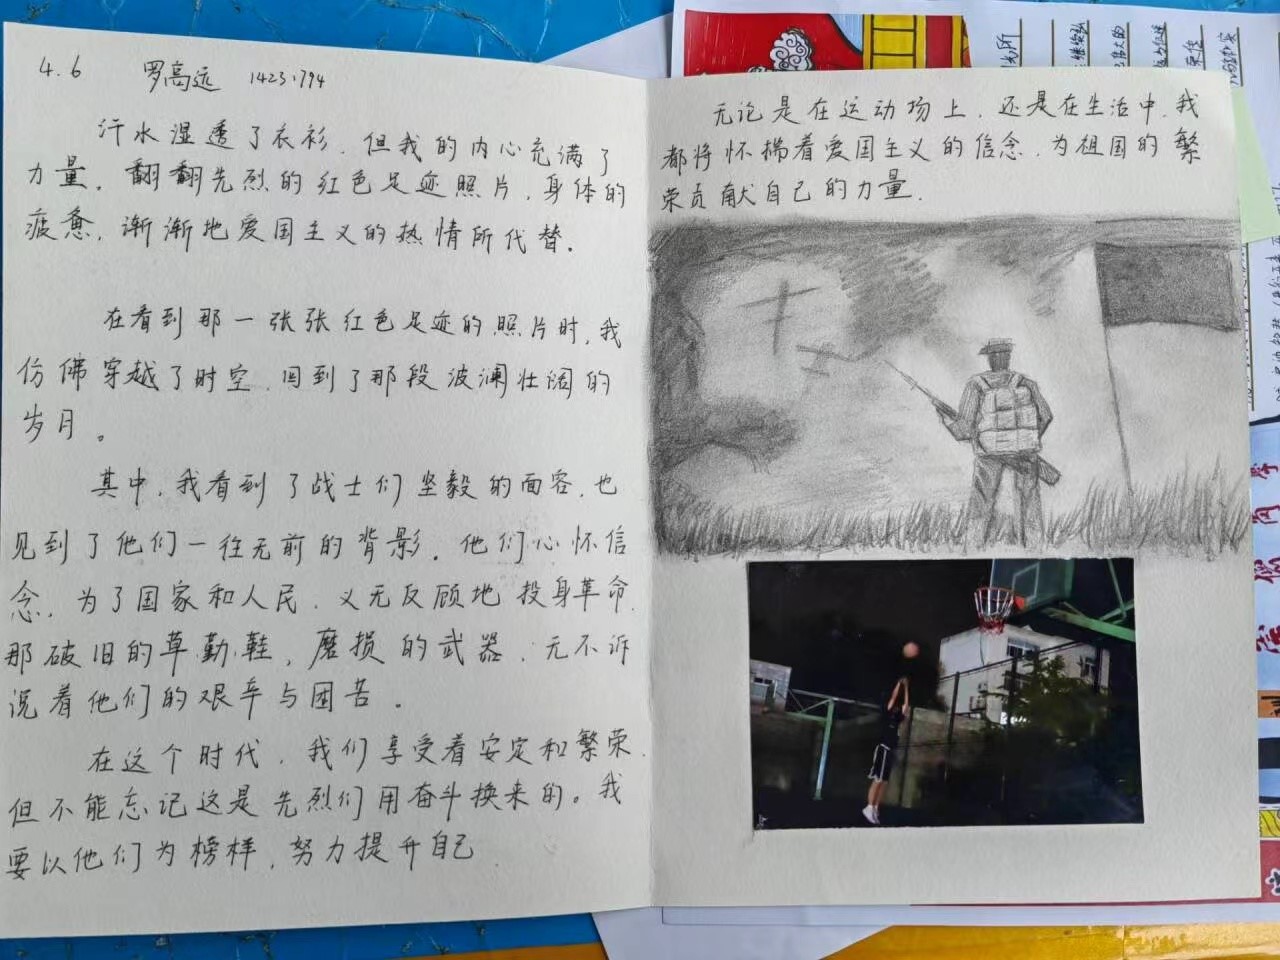 4.6 罗高远 14231794
汗水湿透了衣衫，但我的内心充满了
力量。翻翻先烈的红色足迹照片，身体的
疲惫，渐渐地爱国主义的热情所代替。
在看到那一张张红色足迹的照片时，我
仿佛穿越了时空，回到了那段波澜壮阔的
岁月。
其中，我看到了战士们坚毅的面容，也
见到了他们一往无前的背影。他们心怀信
念，为了国家和人民，义无反顾地投身革命，
那破旧的草鞋，磨损的武器，无不诉
说着他们的艰辛与困苦。
在这个时代，我们享受着安定和繁荣，
但不能忘记这是先烈们用奋斗换来的。我
要以他们为榜样，努力提升自己
无论是在运动场上，还是在生活中，我
都将怀揣着爱国主义的信念，为祖国的繁
荣贡献自己的力量.